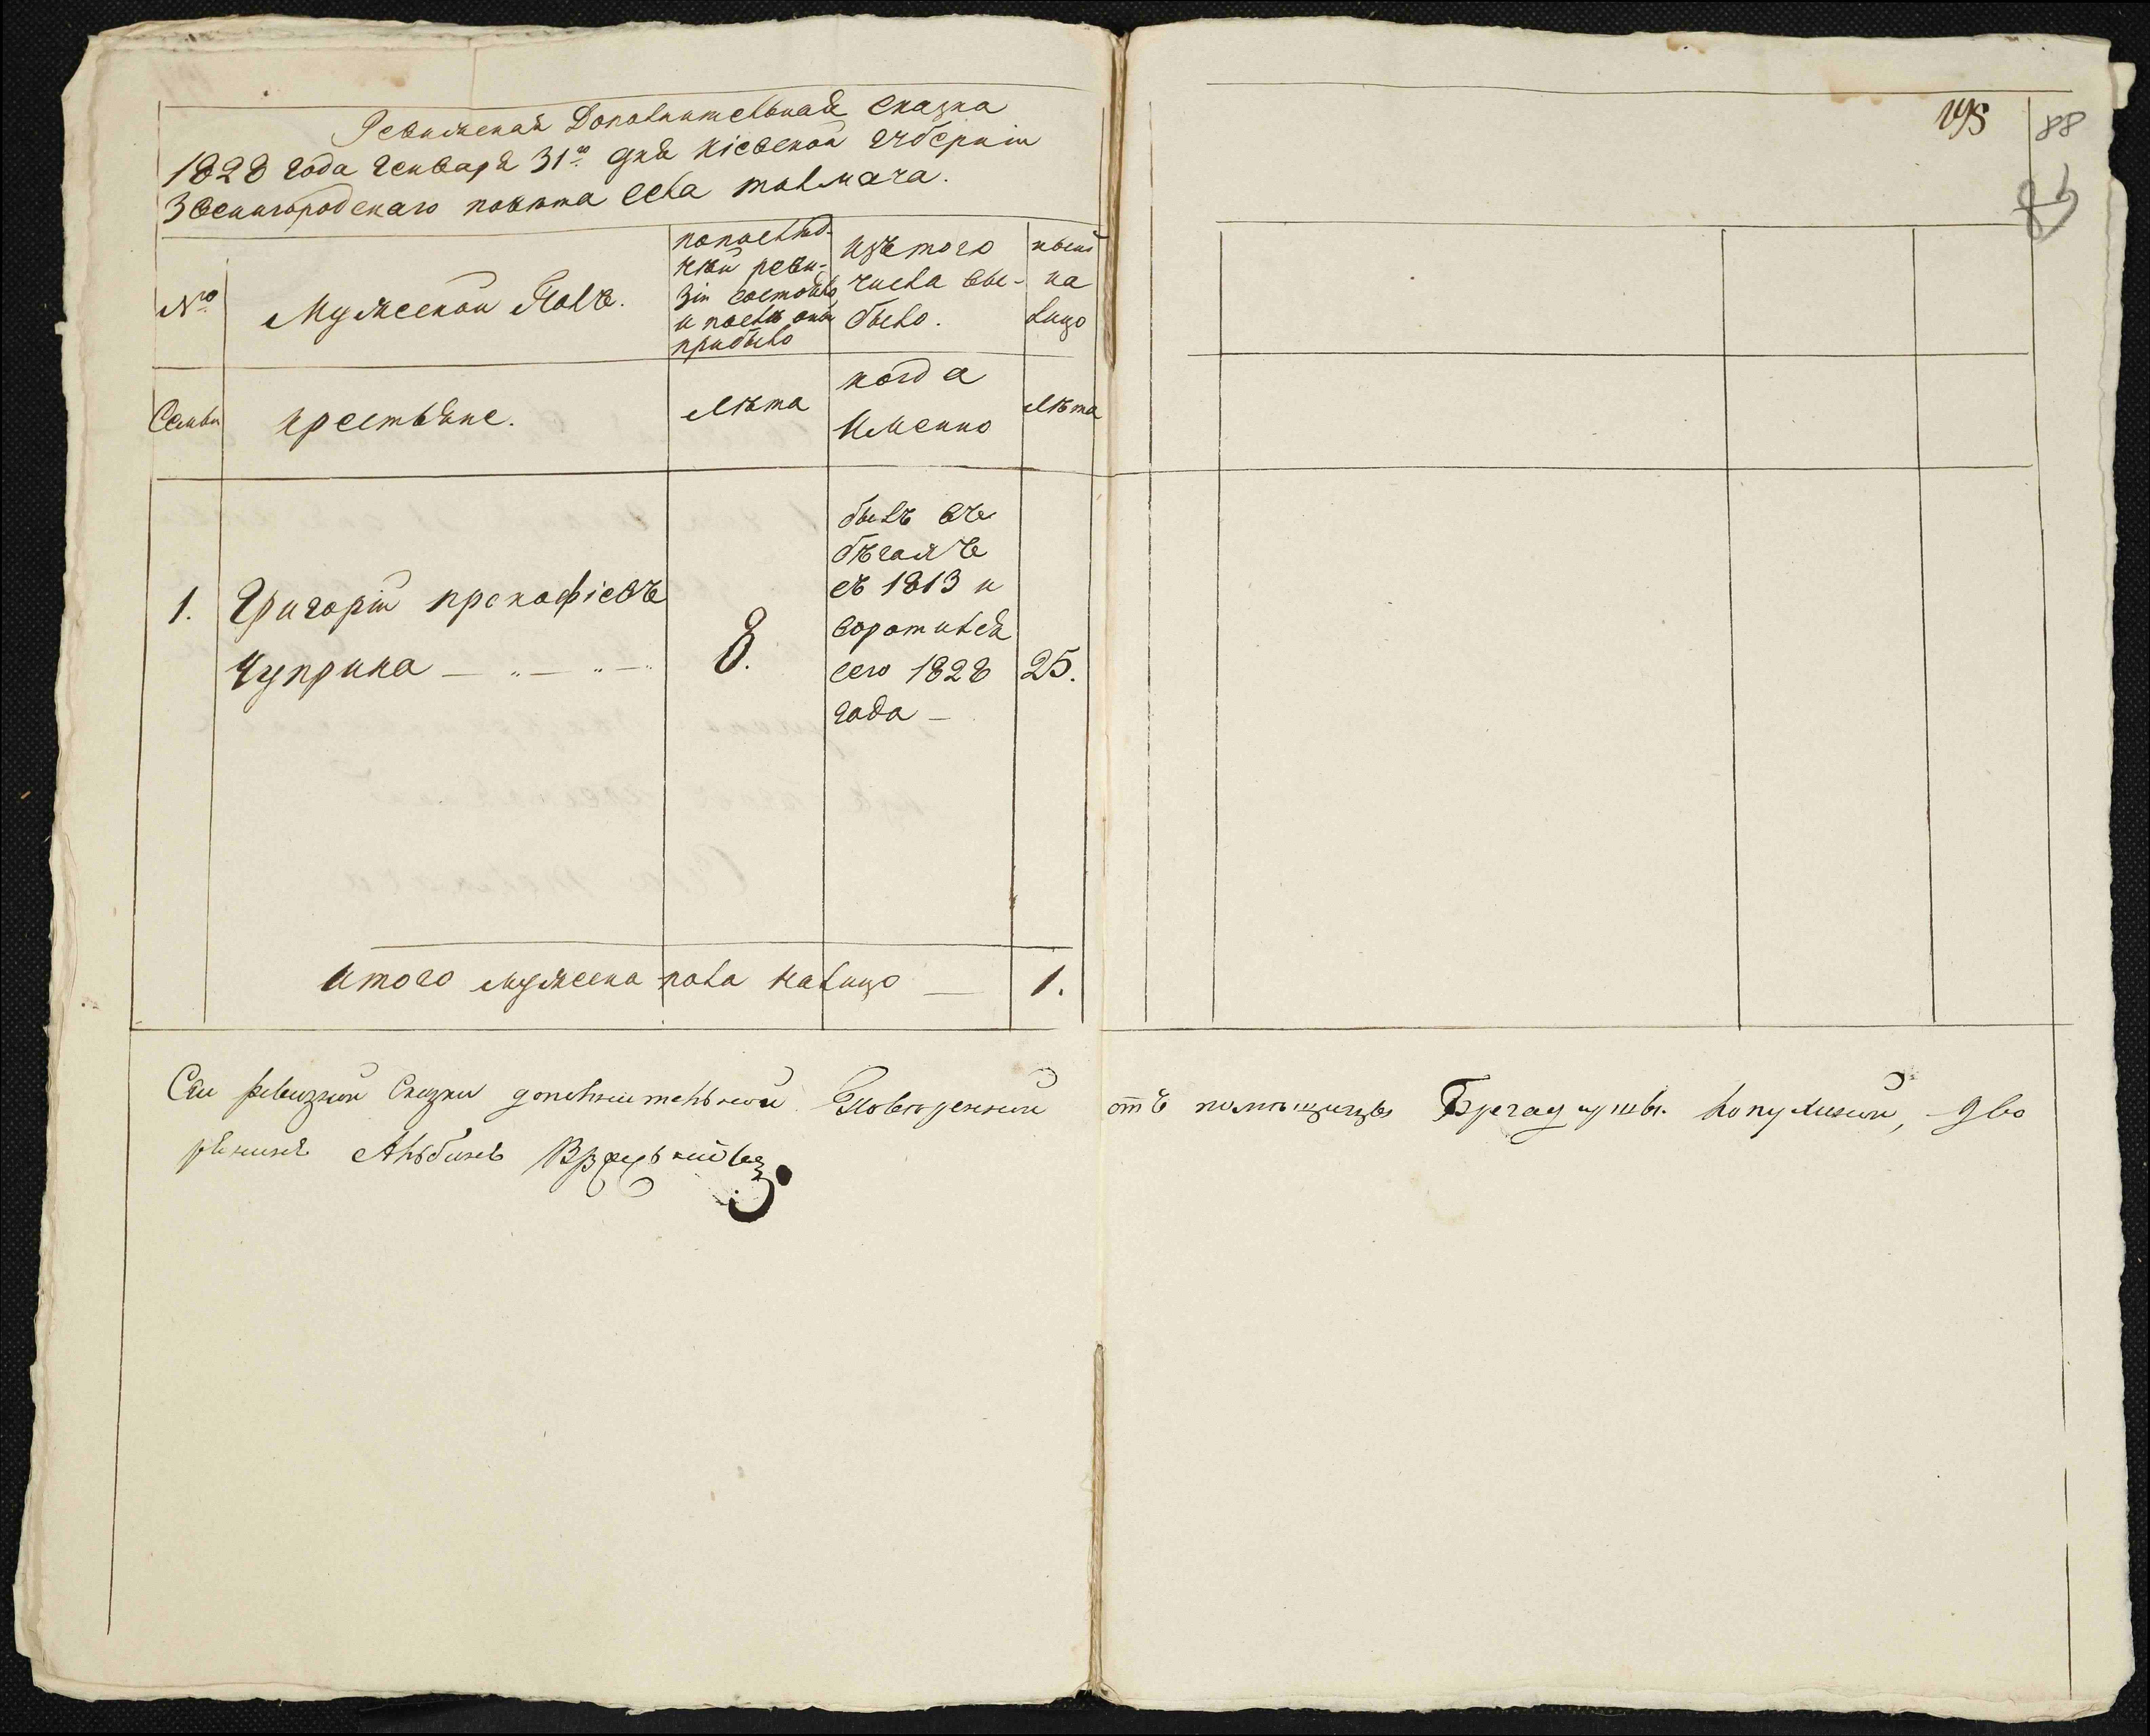 Ревижская Дополнительная сказка
1828 года генваря 31го дня кіевской губерніи
Звенигородскаго повѣта села толмача.
№о
Мужеской Полъ.
попослѣд-
нѣй реви-
зіи состояло
и послѣ оной
прибыло
изъ того
числа вы-
было.
ныне
на
лицо
Семьи
крестьяне.
лѣта
когда
именно
лѣта
1.
Григорій прокофіевъ
Чуприна
8.
былъ въ
бѣгахъ
съ 1813 и
воротился
сего 1828
года
25.
итого мужеска пола налицо
1.
Сій ревизкой Сказки дополнительной
отъ помѣщицы
Лопухиной, дво
рянинъ
88